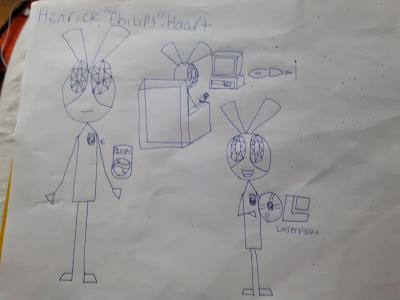 Henrick "Philips" Haart
Laservision